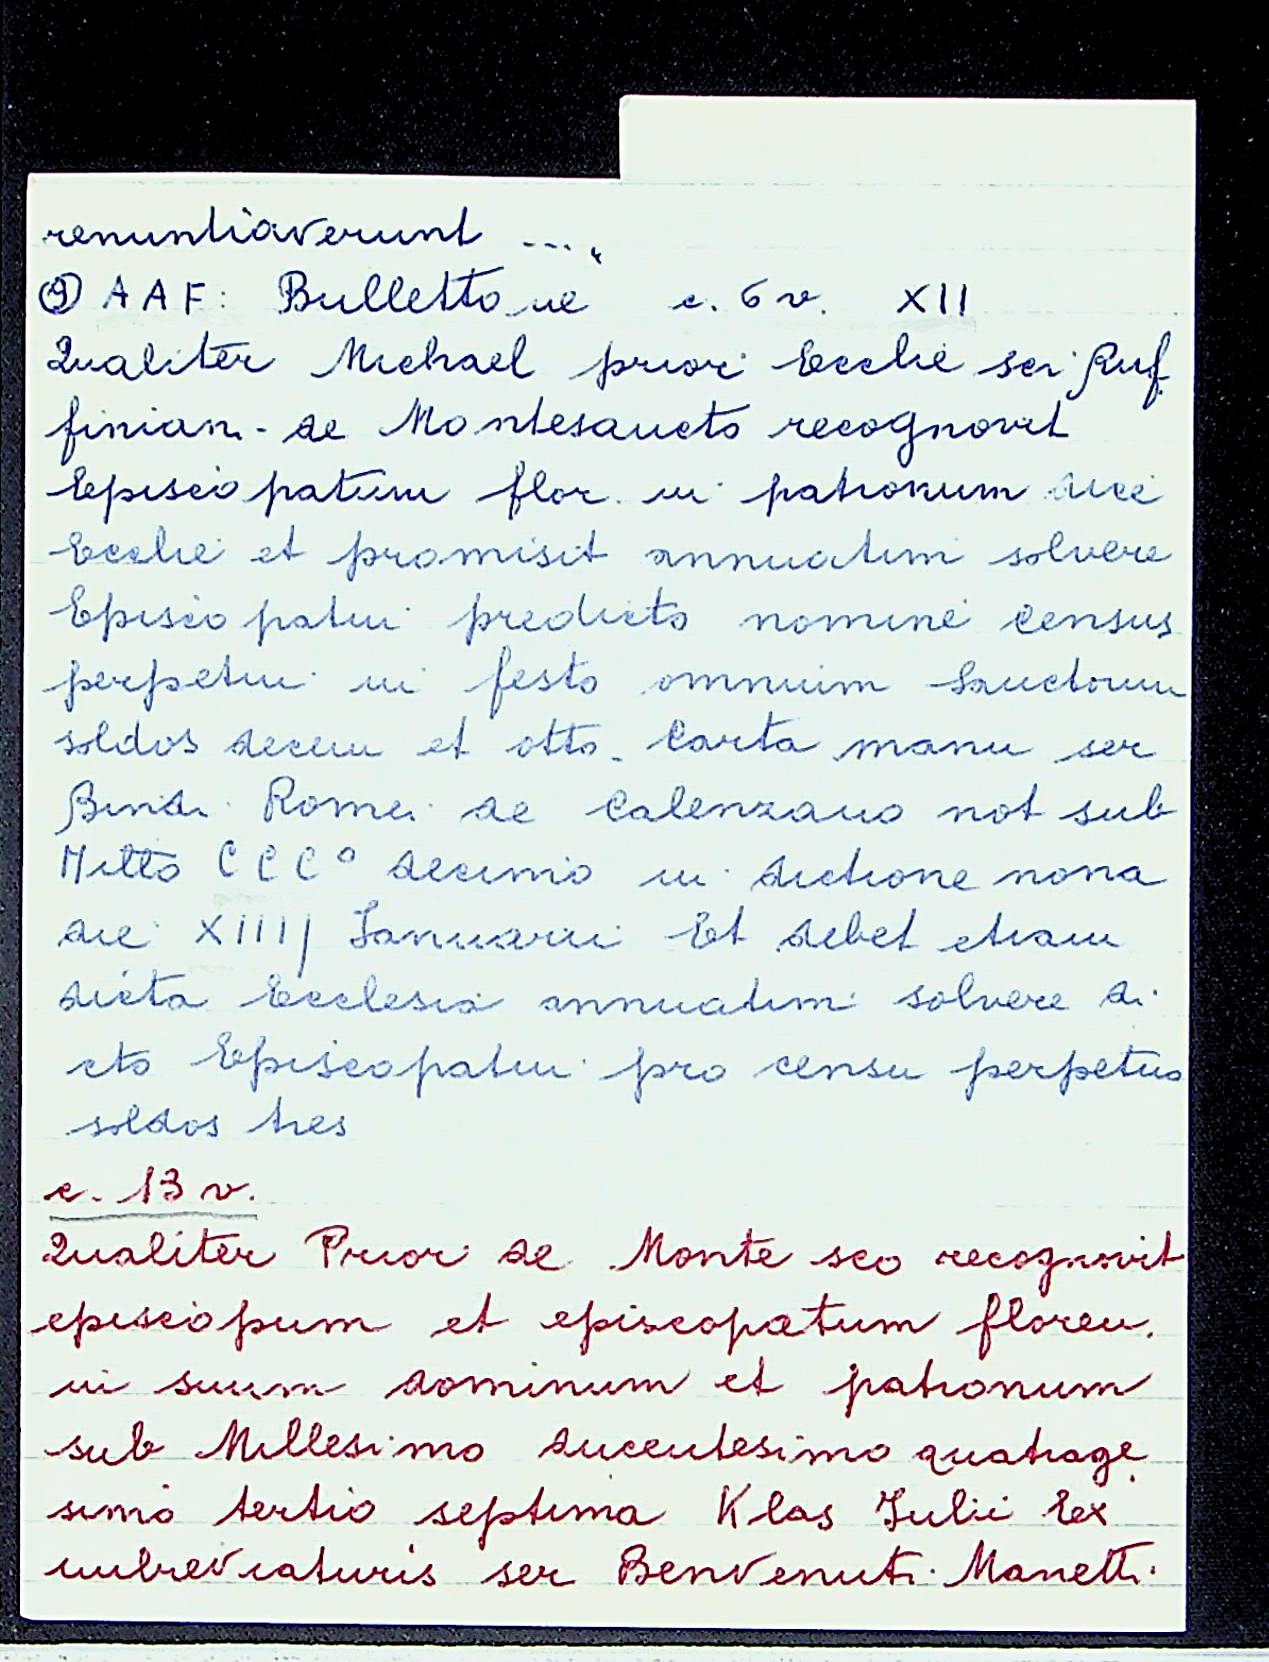 renuntiaverunt ...."
⑨ AAF: Bullettone c. 6 v. XII
Qualiter Michael prior Ecclie sci Ruf
finian. de Montesancto recognovit
Episcopatum flor. in patronum dicte
Ecclie et promisit annuatim solvere
Episcopatui predicto nomine census
perpetui in festo omnium Sanctorum
soldos decem et otto. Carta manu ser
Bindi Romei de Calenzano not sub
Millo CCC° decimo indictione nona
die XIIII Ianuarii Et debet etiam
dicta Ecclesia annuatim solvere di
cto Episcopatui pro censu perpetuo
soldos tres
c. 13 v.
Qualiter Prior de Monte sco recognovit
episcopum et episcopatum floren.
in suum dominum et patronum
sub Millesimo ducentesimo quatrage
simo tertio septima Klas Iulii Ex
imbreviaturis ser Benvenuti Manetti.